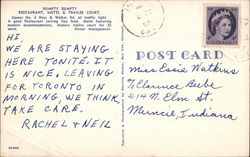 HUMPTY DUMPTY
RESTAURANT, MOTEL & TRAILER COURT
Corner No. 2 Hwy. & Walker Rd. at traffic light.
A good Restaurant serving fine food. Motel featuring
modern accommodations. Modern trailer court for
Owner Management.
HI,
WE ARE STAYING
HERE TONITE. IT
IS NICE, LEAVING
FOR TORONTO IN
MORNING, WE THINK,
TAKE CARE.
RACHEL & NEIL
POST CARD
Miss Essie Watkins
% Clarence Beebe
414 N. Elm St.
Muncie, Indiana